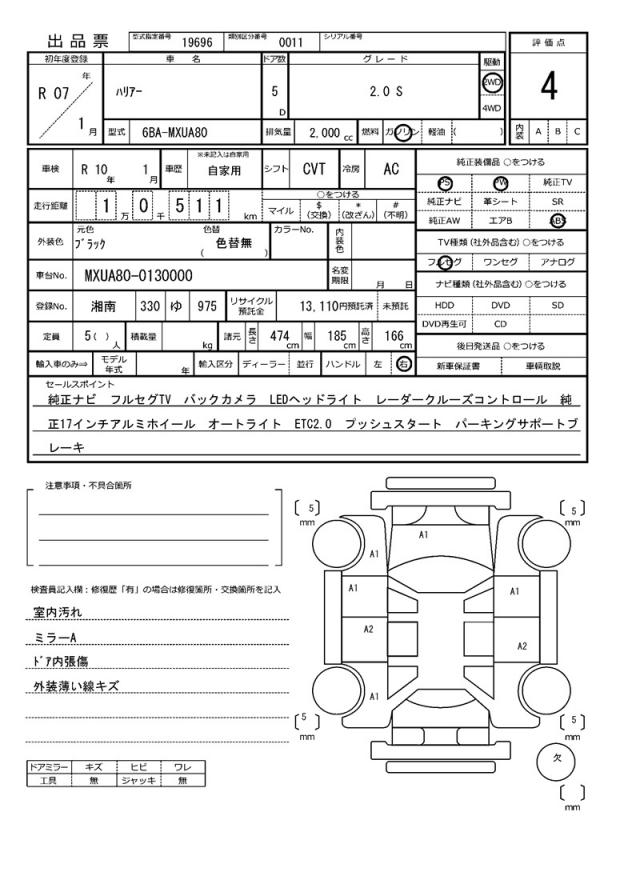 出品票
型式指定番号 19696 類別区分番号 0011 シリアル番号
評価点
4
内装 A B C
初年度登録 車名 ドア数 グレード 駆動
R 07 年 1 月
ﾊﾘｱｰ 5 D 2.0 S 2WD 4WD
型式 6BA-MXUA80 排気量 2,000 cc 燃料 ガソリン 軽油 ( )
車検 R 10 年 1 月 車歴 ※未記入は自家用 自家用 シフト CVT 冷房 AC
走行距離 1 万 0 千 5 1 1 km
○をつける
マイル $ (交換) * (改ざん) # (不明)
外装色 元色 ﾌﾞﾗｯｸ 色替 ( 色替無 ) カラーNo. 内装色
車台No. MXUA80-0130000 名変期限 月 日
登録No. 湘南 330 ゆ 975 リサイクル預託金 13,110円預託済 未預託
定員 5( )人 積載量 kg 諸元 長さ 474 cm 幅 185 cm 高さ 166 cm
輸入車のみ⇒ モデル年式 年 輸入区分 ディーラー 並行 ハンドル 左 右
純正装備品 ○をつける
PS PW 純正TV
純正ナビ 革シート SR
純正AW エアB ABS
TV種類(社外品含む) ○をつける
フルセグ ワンセグ アナログ
ナビ種類(社外品含む) ○をつける
HDD DVD SD
DVD再生可 CD
後日発送品 ○をつける
新車保証書 車輌取説
セールスポイント
純正ナビ フルセグTV バックカメラ LEDヘッドライト レーダークルーズコントロール 純
正17インチアルミホイール オートライト ETC2.0 プッシュスタート パーキングサポートブ
レーキ
注意事項・不具合箇所
検査員記入欄：修復歴「有」の場合は修復箇所・交換箇所を記入
室内汚れ
ミラーA
ﾄﾞｱ内張傷
外装薄い線キズ
ドアミラー キズ ヒビ ワレ
工具 無 ジャッキ 無
[ 5 ] mm
[ 5 ] mm
A1
A1
A1
A1 A1
A2
A2
A1
[ 5 ] mm
[ 5 ] mm
欠
[ ] mm